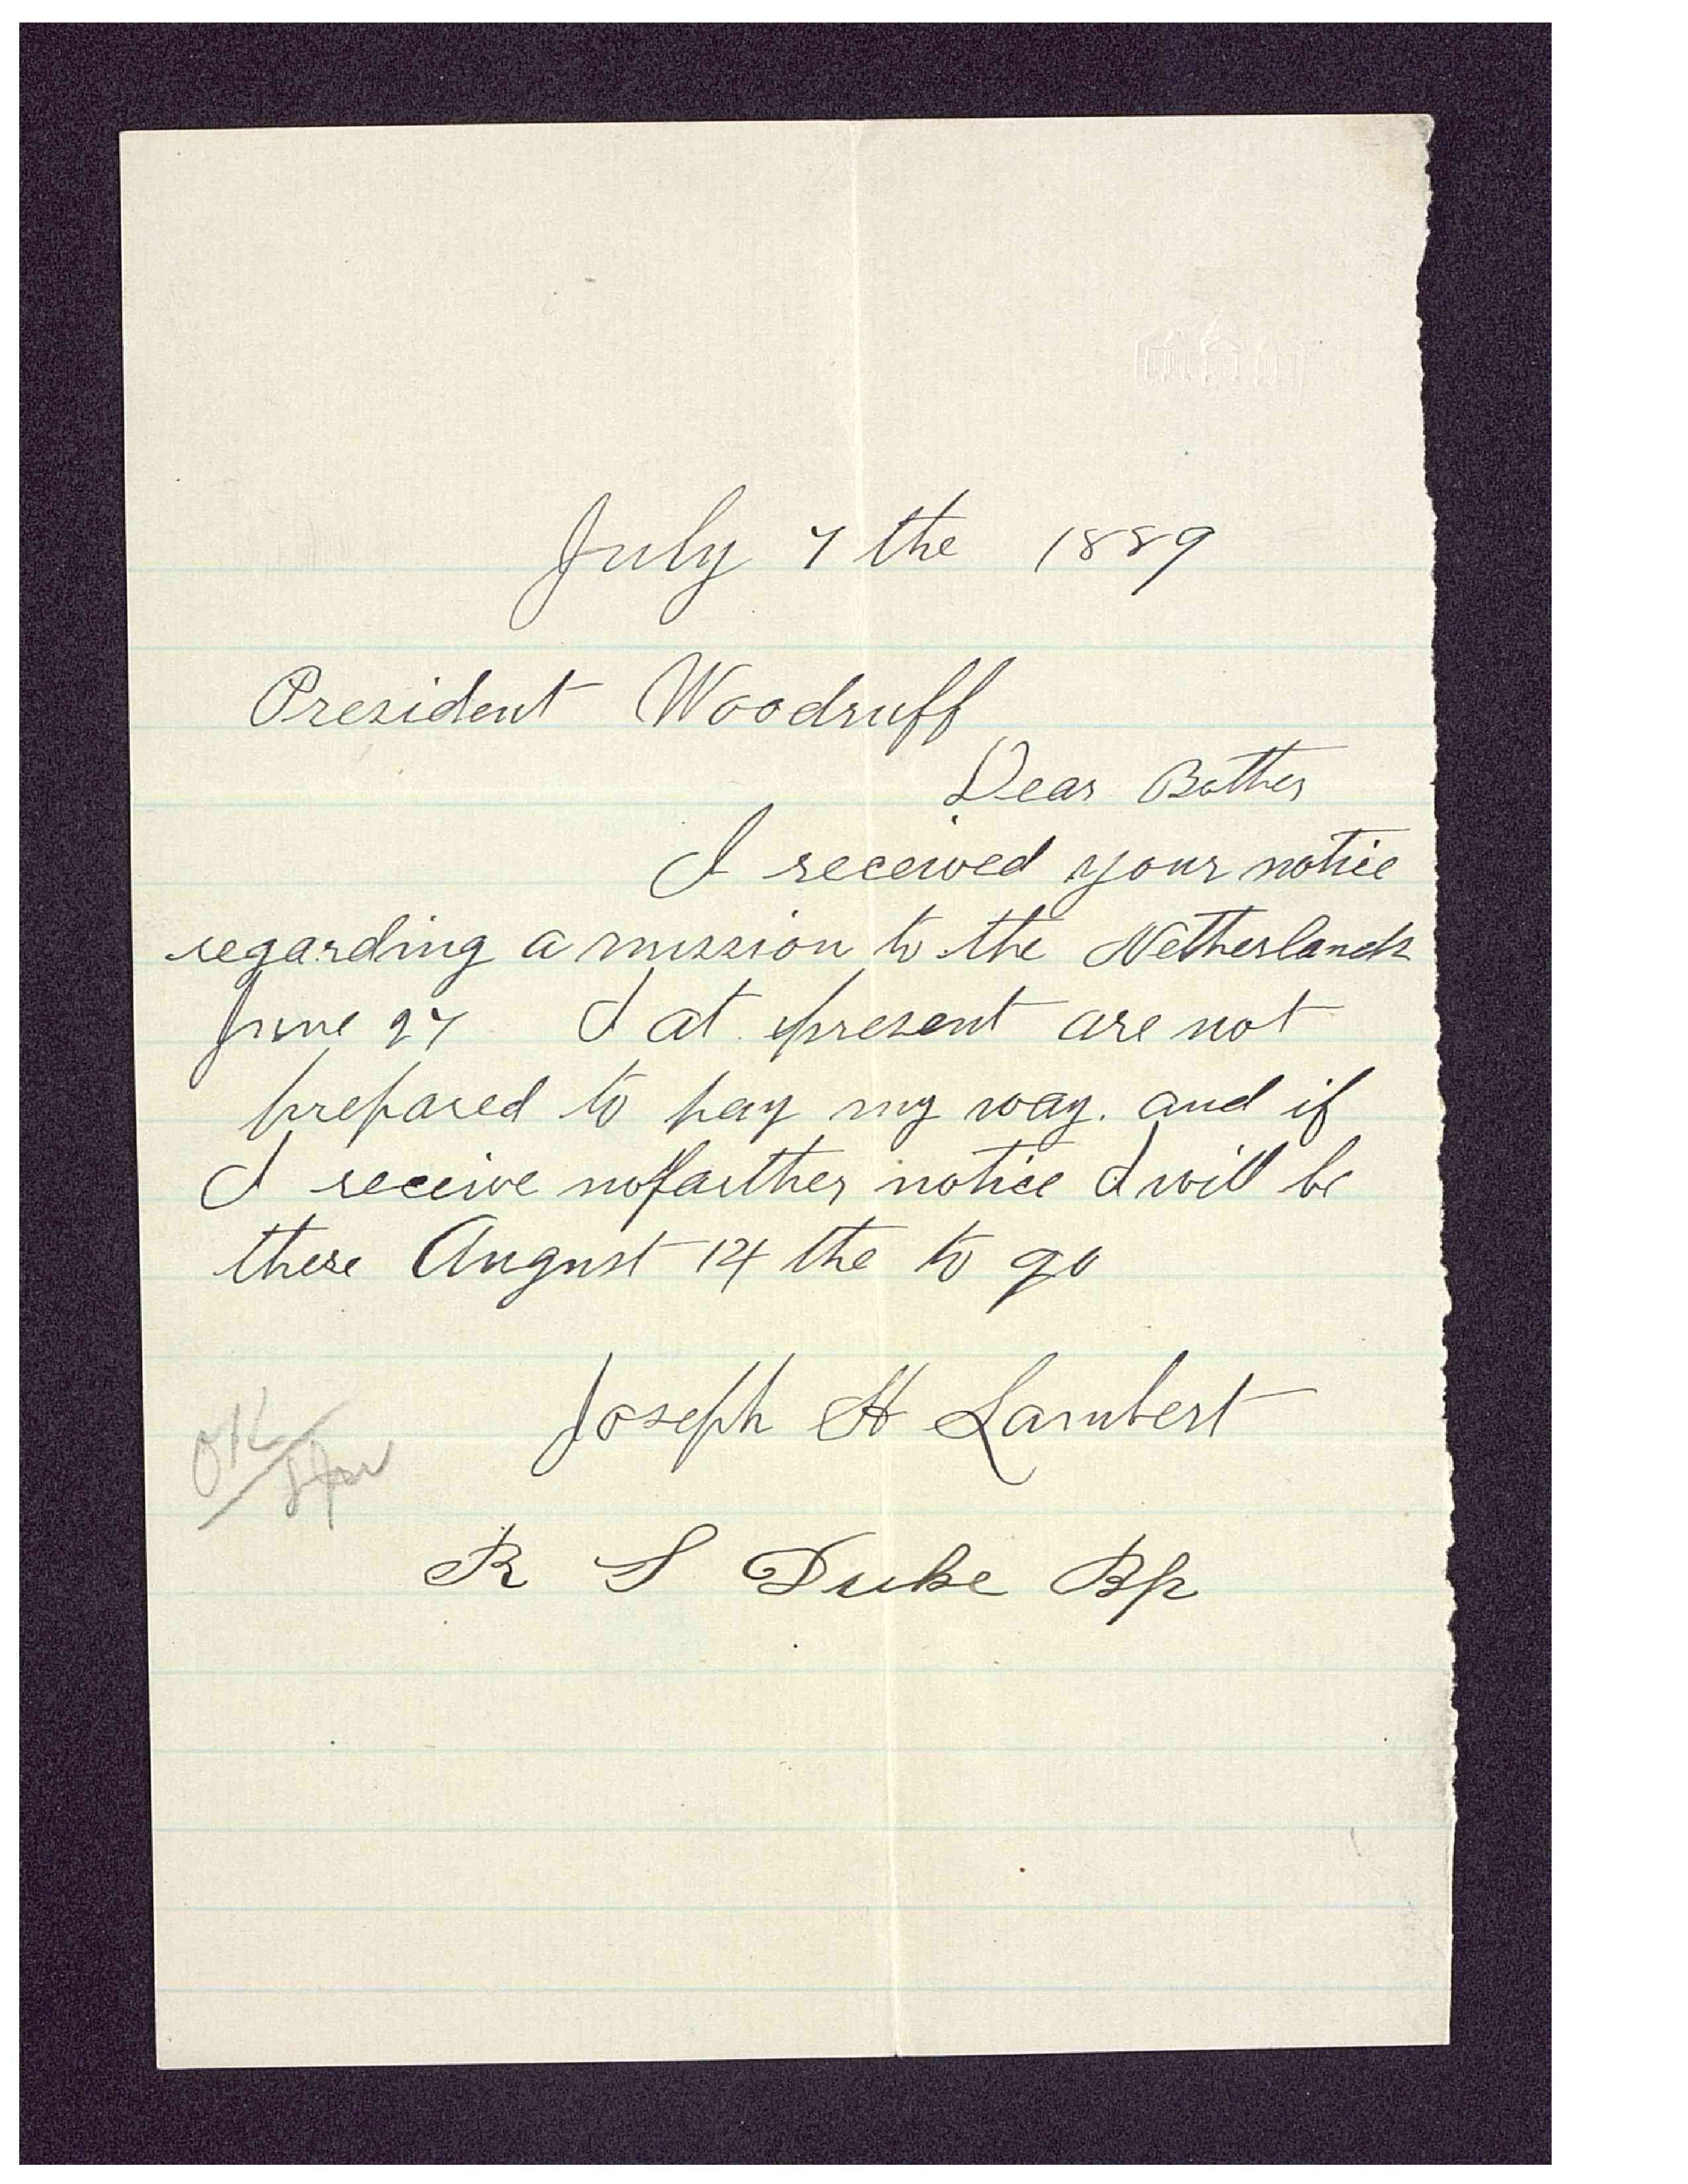 July 7 the 1889
President Woodruff
Dear Bother
I received your notice
regarding a mission to the Netherlands
June 27 I at present are not
prepared to pay my way. and if
I receive no farther notice I will be
there August 14 the to go
Joseph H Lambert
OK
R S Duke Bp